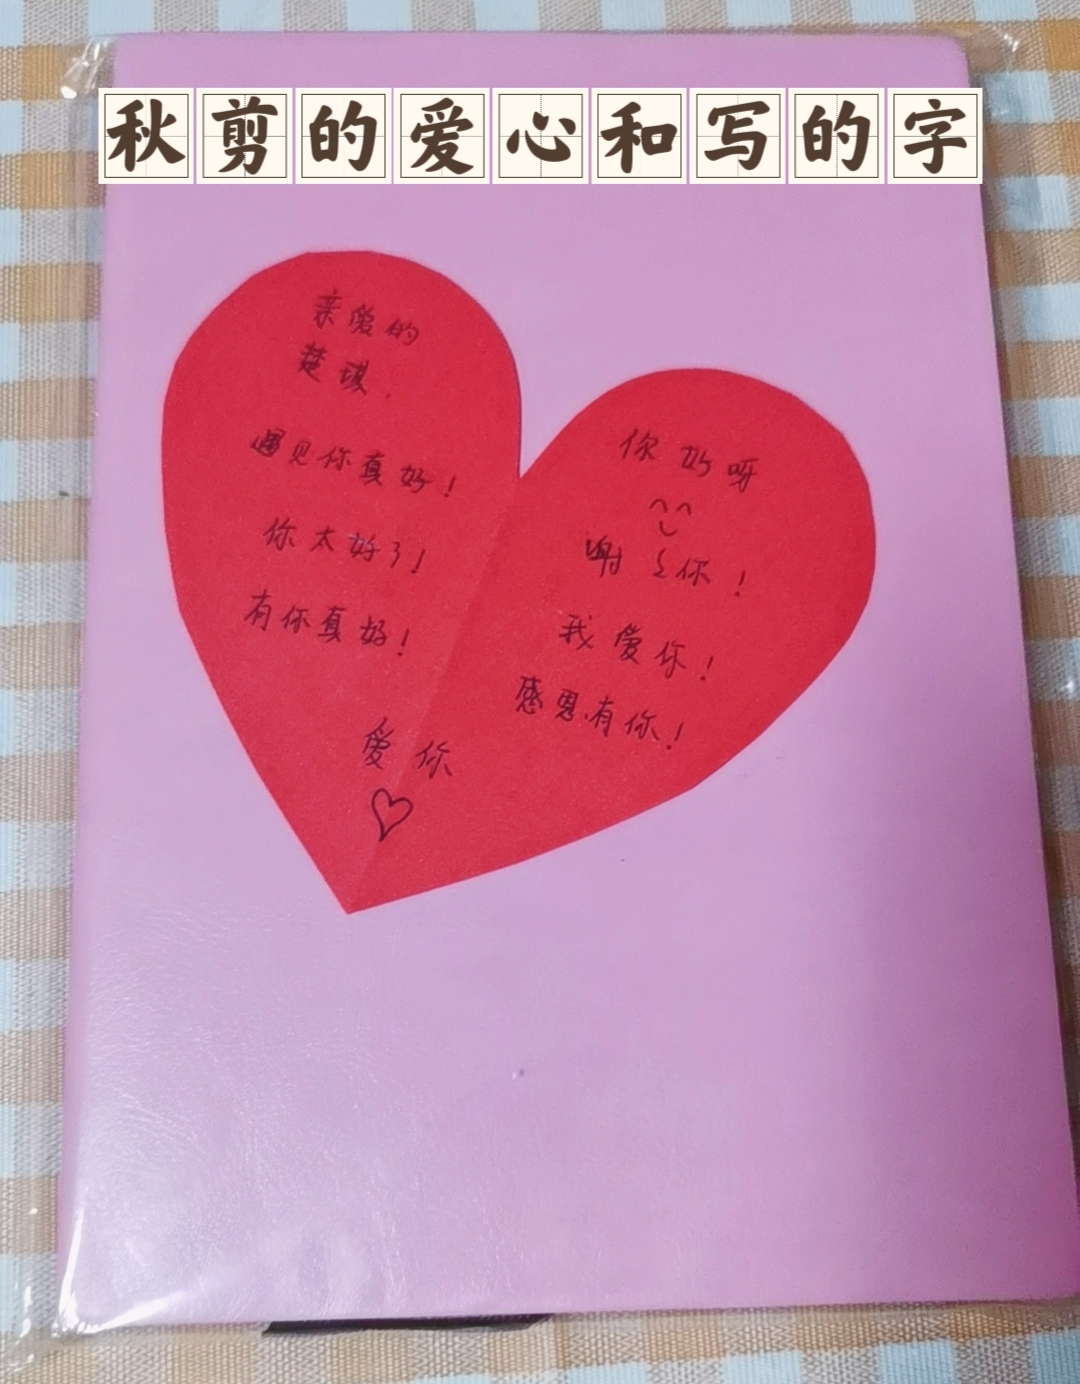 秋剪的爱心和写的字
亲爱的
楚琪,
遇见你真好!
你太好了!
有你真好!
爱你
你好呀
谢谢你!
我爱你!
感恩有你!